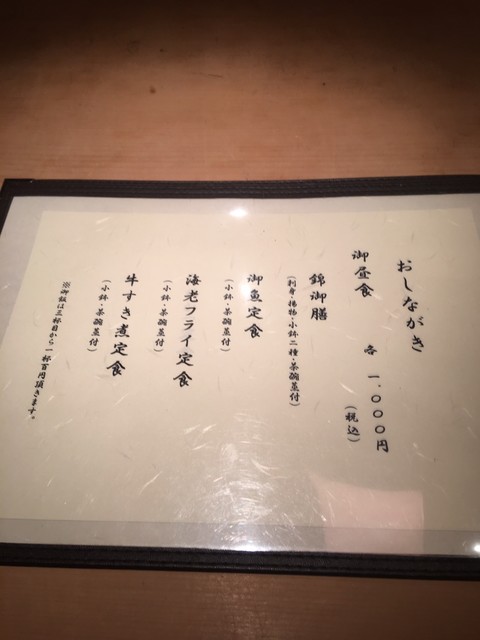 おしながき
御昼食
各 一.〇〇〇円
(税込)
錦御膳
(刺身・揚物・小鉢二種・茶碗蒸付)
御魚定食
(小鉢・茶碗蒸付)
海老フライ定食
(小鉢・茶碗蒸付)
牛すき煮定食
(小鉢・茶碗蒸付)
※御飯は三杯目から一杯百円頂きます。